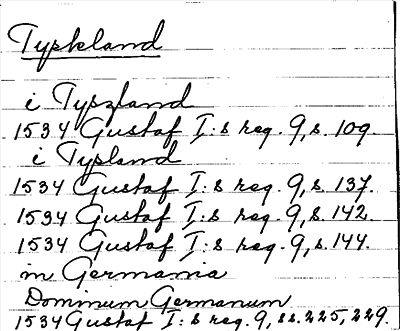 Tyskland
i Tyszland
1534 Gustaf I:s reg. 9, s. 109.
i Tysland
1534 Gustaf I:s reg. 9, s. 137.
1534 Gustaf I:s reg. 9, s. 142.
1534 Gustaf I:s reg. 9, s. 144.
in Germania
Dominum Germanum
1534 Gustaf I:s reg. 9, ss. 225, 229.